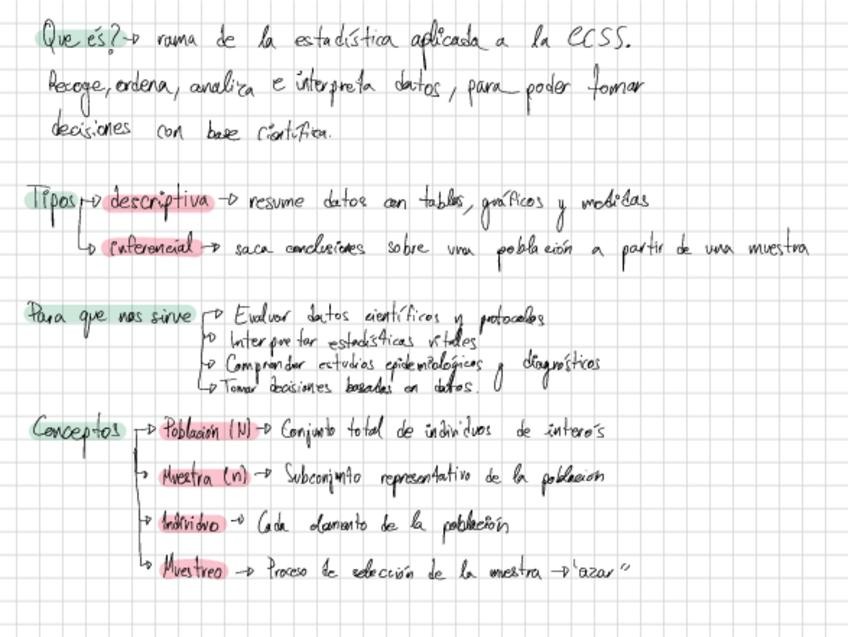 Que és? → rama de la estadística aplicada a la CCSS.
Recoge, ordena, analiza e interpreta datos, para poder tomar
decisiones con base científica.
Tipos → descriptiva → resume datos con tablas, gráficos y medidas
→ inferencial → saca conclusiones sobre una población a partir de una muestra
Para que nos sirve → Evaluar datos científicos y protocolos
→ Interpretar estadísticas vitales
→ Comprender estudios epidemiológicos y diagnósticos
→ Tomar decisiones basadas en datos.
Conceptos → Población (N) → Conjunto total de individuos de interés
→ Muestra (n) → Subconjunto representativo de la población
→ Individuo → Cada elemento de la población
→ Muestreo → Proceso de selección de la muestra → "azar"